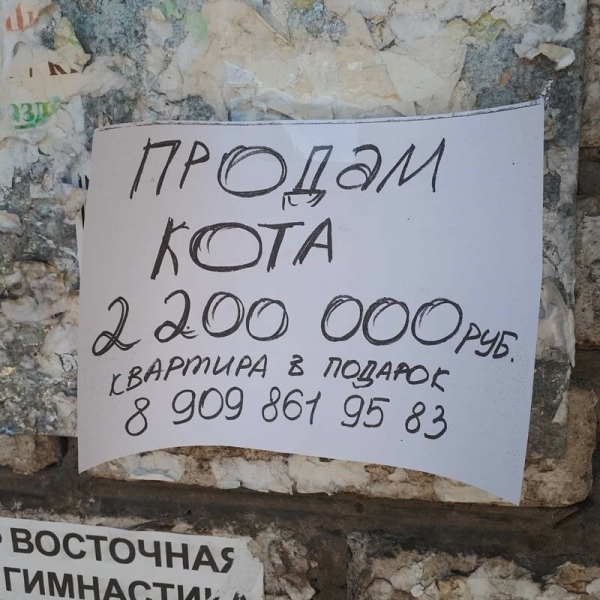 ПРОДАМ
КОТА
2 200 000 РУБ.
КВАРТИРА В ПОДАРОК
8 909 861 95 83
ВОСТОЧНАЯ
ГИМНАСТИК